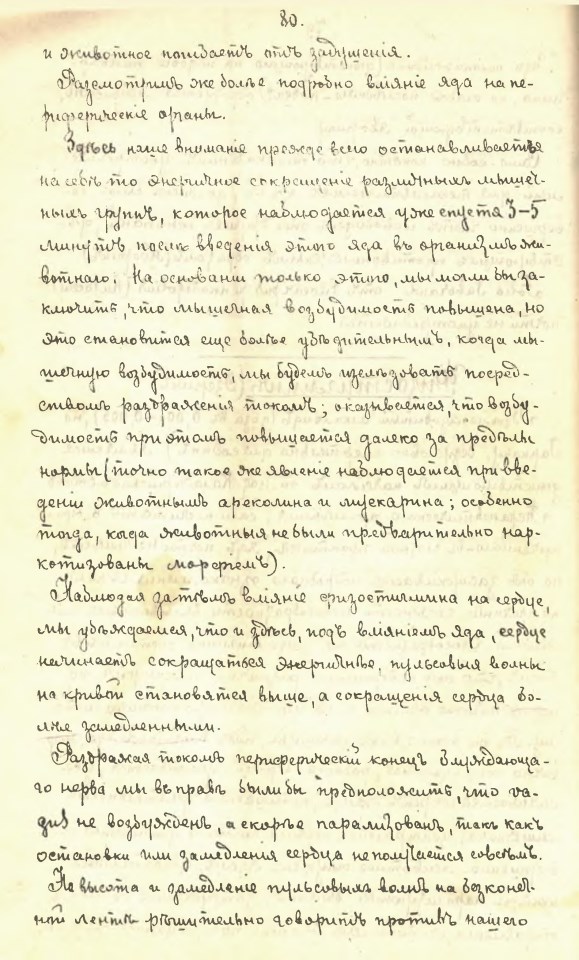 80.
и животное погибаетъ отъ задушенія.
Разсмотримъ же болѣе подробно вліяніе яда на пе-
риферическіе органы.
Здѣсь наше вниманіе прежде всего останавливаетъ
на себѣ то энергичное сокращеніе различныхъ мышеч-
ныхъ группъ, которое наблюдается уже спустя 3–5
минутъ послѣ введенія этого яда въ организмъ жи-
вотнаго. На основаніи только этого, мы могли бы за-
ключить, что мышечная возбудимость повышена, но
это становится еще болѣе убѣдительнымъ, когда мы-
шечную возбудимость, мы будемъ изслѣдовать посред-
ствомъ раздраженія токомъ; оказывается, что возбу-
димость при этомъ повышается далеко за предѣлы
нормы (точно такое же явленіе наблюдается при вве-
деніи животнымъ ареколина и мускарина; особенно
тогда, когда животныя не были предварительно нар-
котизованы морфіемъ).
Наблюдая затѣмъ вліяніе физостигмина на сердце,
мы убѣждаемся, что и здѣсь, подъ вліяніемъ яда, сердце
начинаетъ сокращаться энергичнѣе, пульсовыя волны
на кривой становятся выше, а сокращенія сердца бо-
лѣе замедленными.
Раздражая токомъ периферическій конецъ блуждающа-
го нерва мы въ правѣ были бы предположить, что va-
gus не возбужденъ, а скорѣе парализованъ, такъ какъ
остановки или замедленія сердца не получается совсѣмъ.
Но высота и замедленіе пульсовыхъ волнъ на безконеч-
ной лентѣ рѣшительно говоритъ противъ нашего